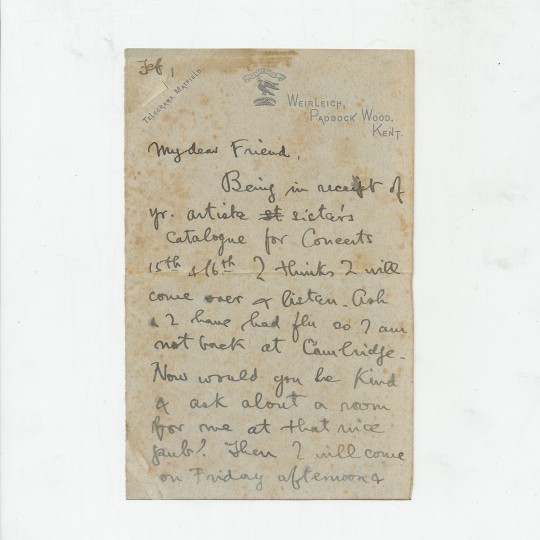 Feb 1
TELEGRAMS MATFIELD.
WEIRLEIGH,
PADDOCK WOOD,
KENT.
My dear Friend,
Being in receipt of
yr. artiste st sister's
catalogue for Concerts
15th & 16th I thinks I will
come over & listen. Ash
& I have had flu so I am
not back at Cambridge.
Now would you be kind
& ask about a room
for me at that nice
pub? Then I will come
on Friday afternoon &